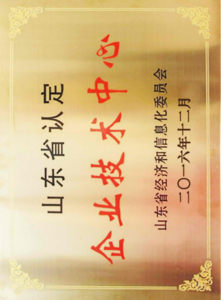 山东省认定
企业技术中心
山东省经济和信息化委员会
二〇一六年十二月